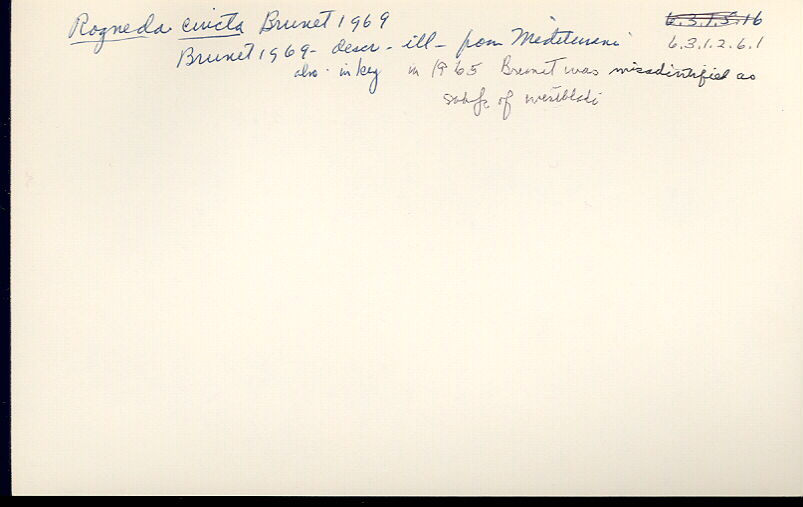 Rogneda cincta Brunet 1969 6.3.1.5.16
Brunet 1969 - descr - ill - from Mediterranean 6.3.1.2.6.1
also - in key in 1965 Brunet was misidentified as
subsp. of westbladi